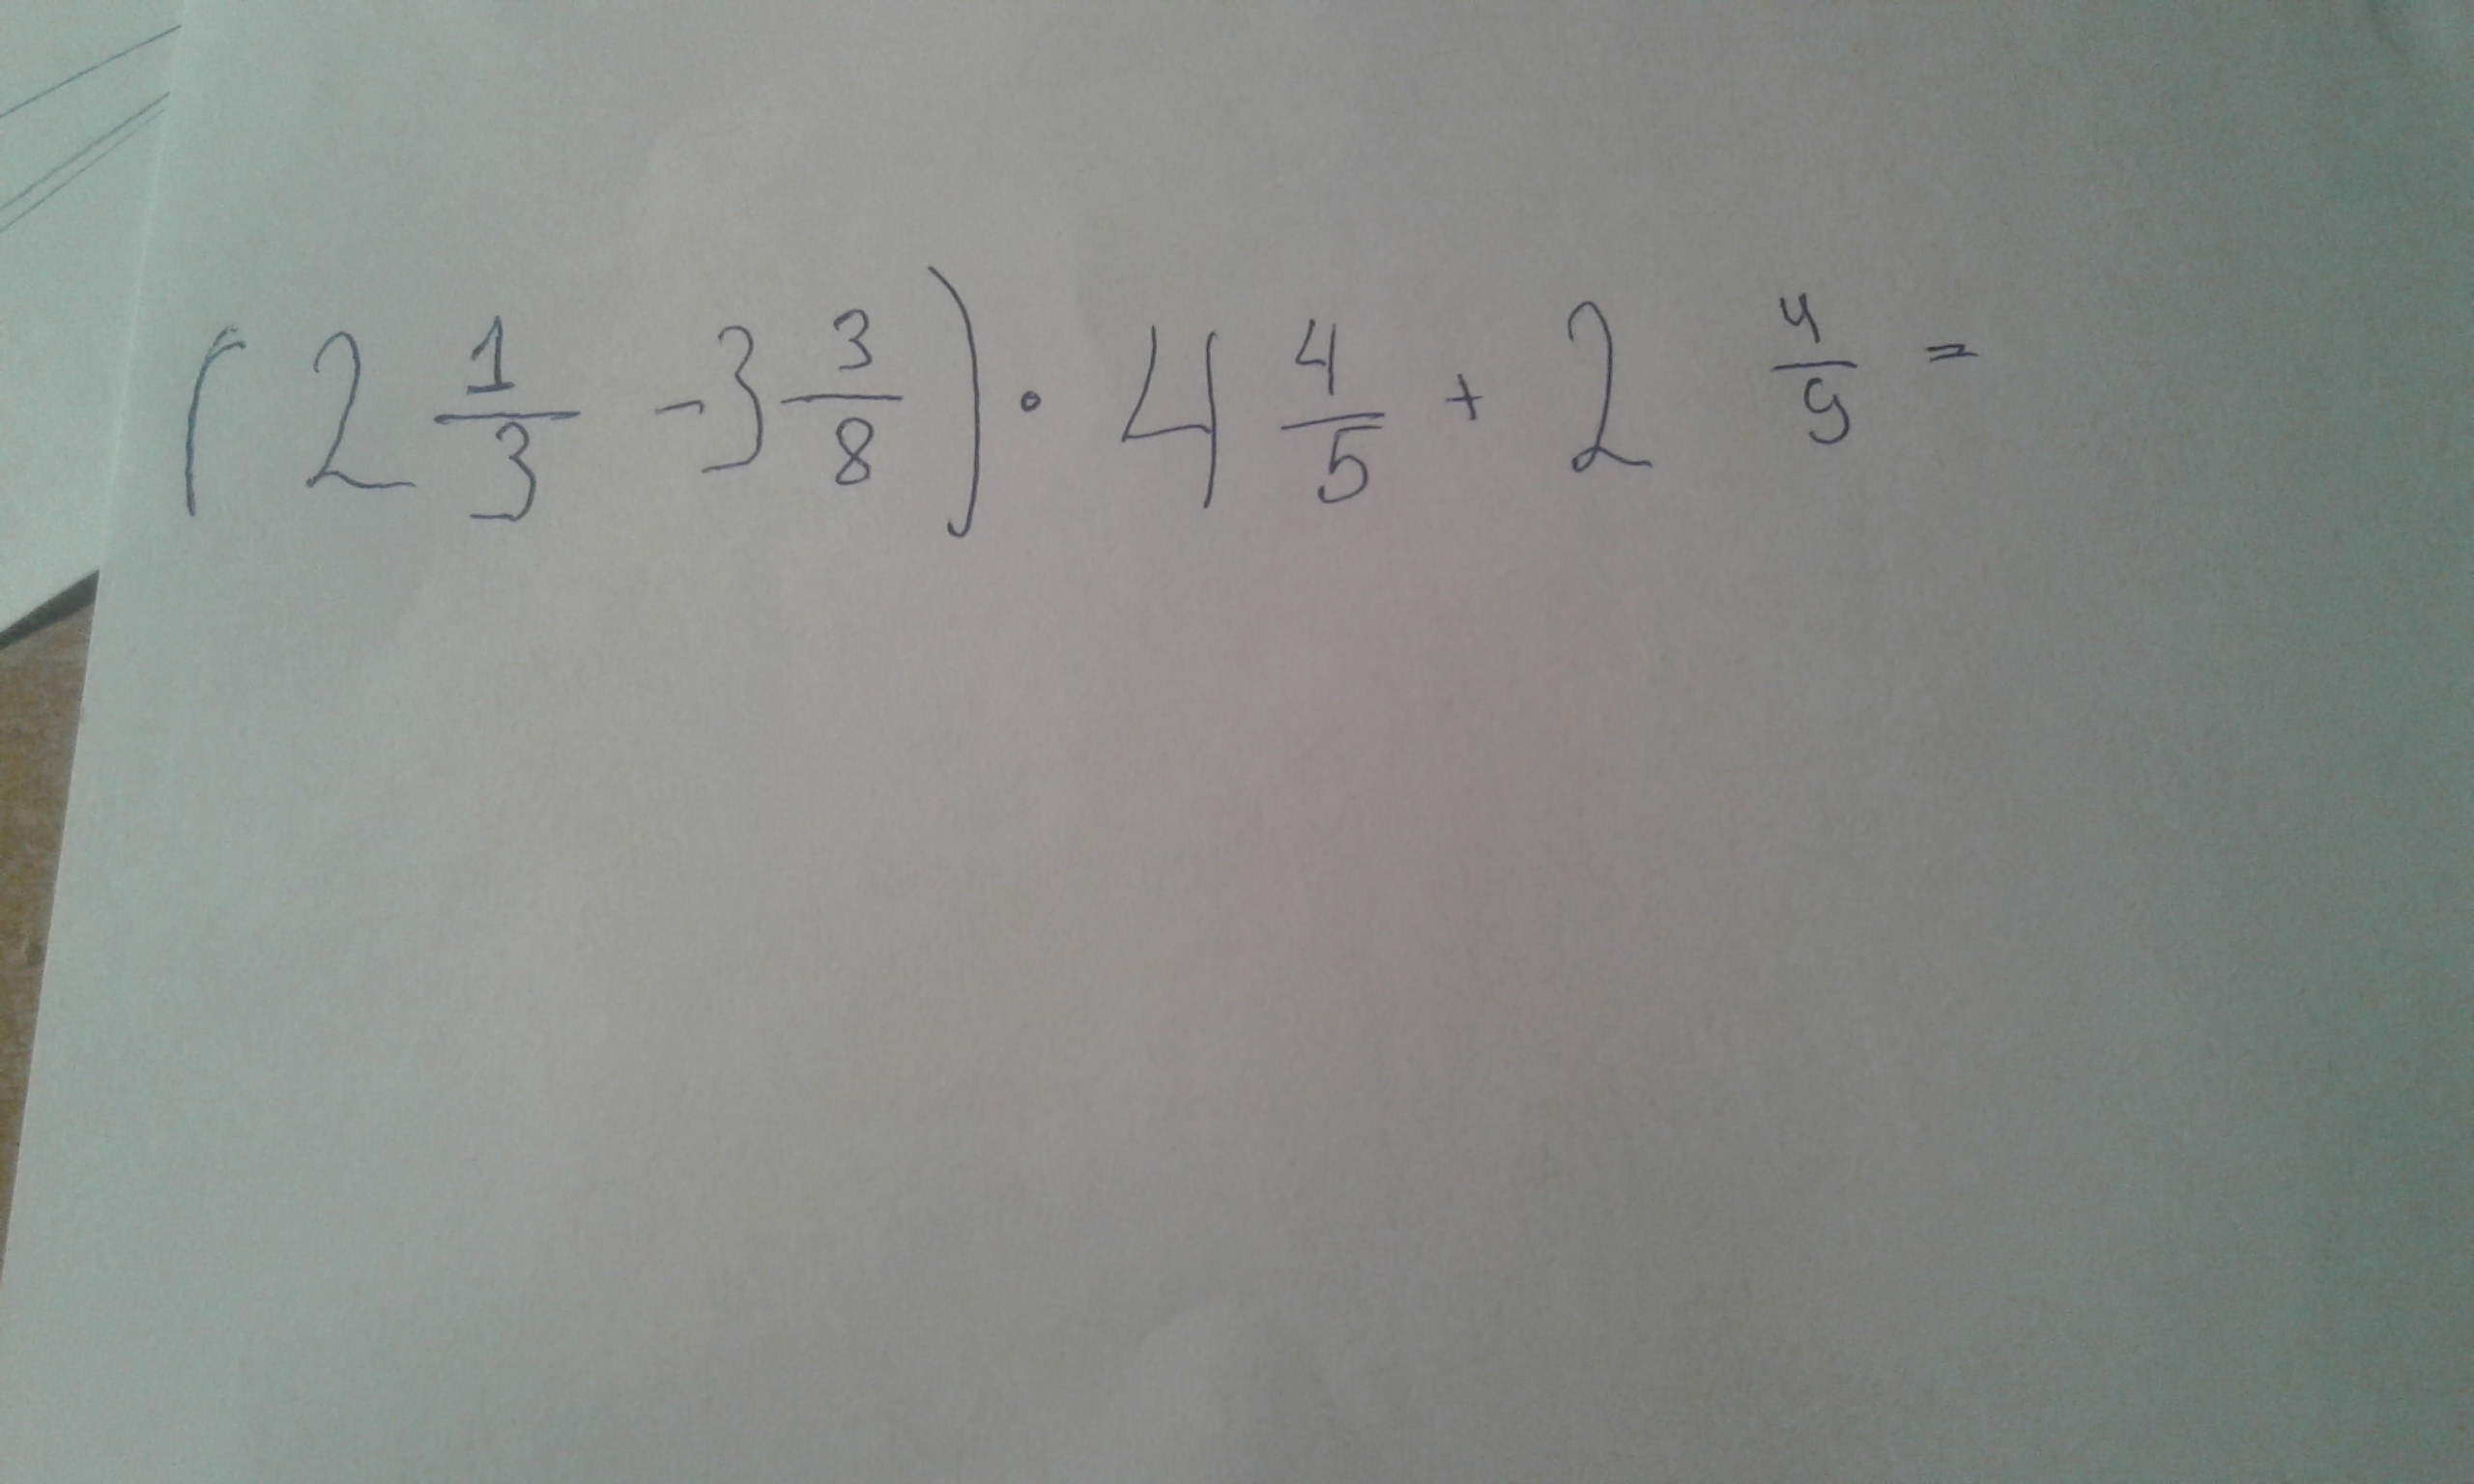 (2 1/3 - 3 3/8) · 4 4/5 + 2 4/9 =